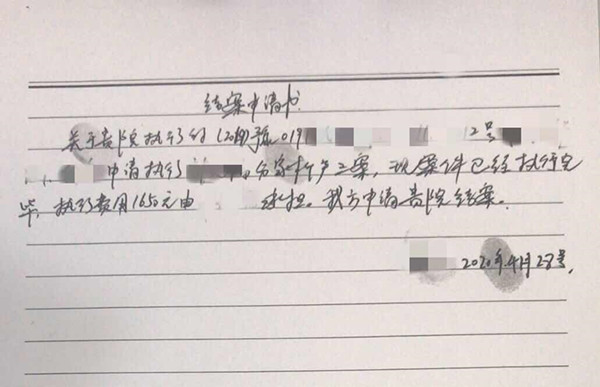 结案申请书
关于贵院执行的(2019)冀019 12号
申请执行 分家析产一案，现案件已经执行完
毕，执行费用1650元由 承担。我方申请贵院结案。
2020年4月28号，